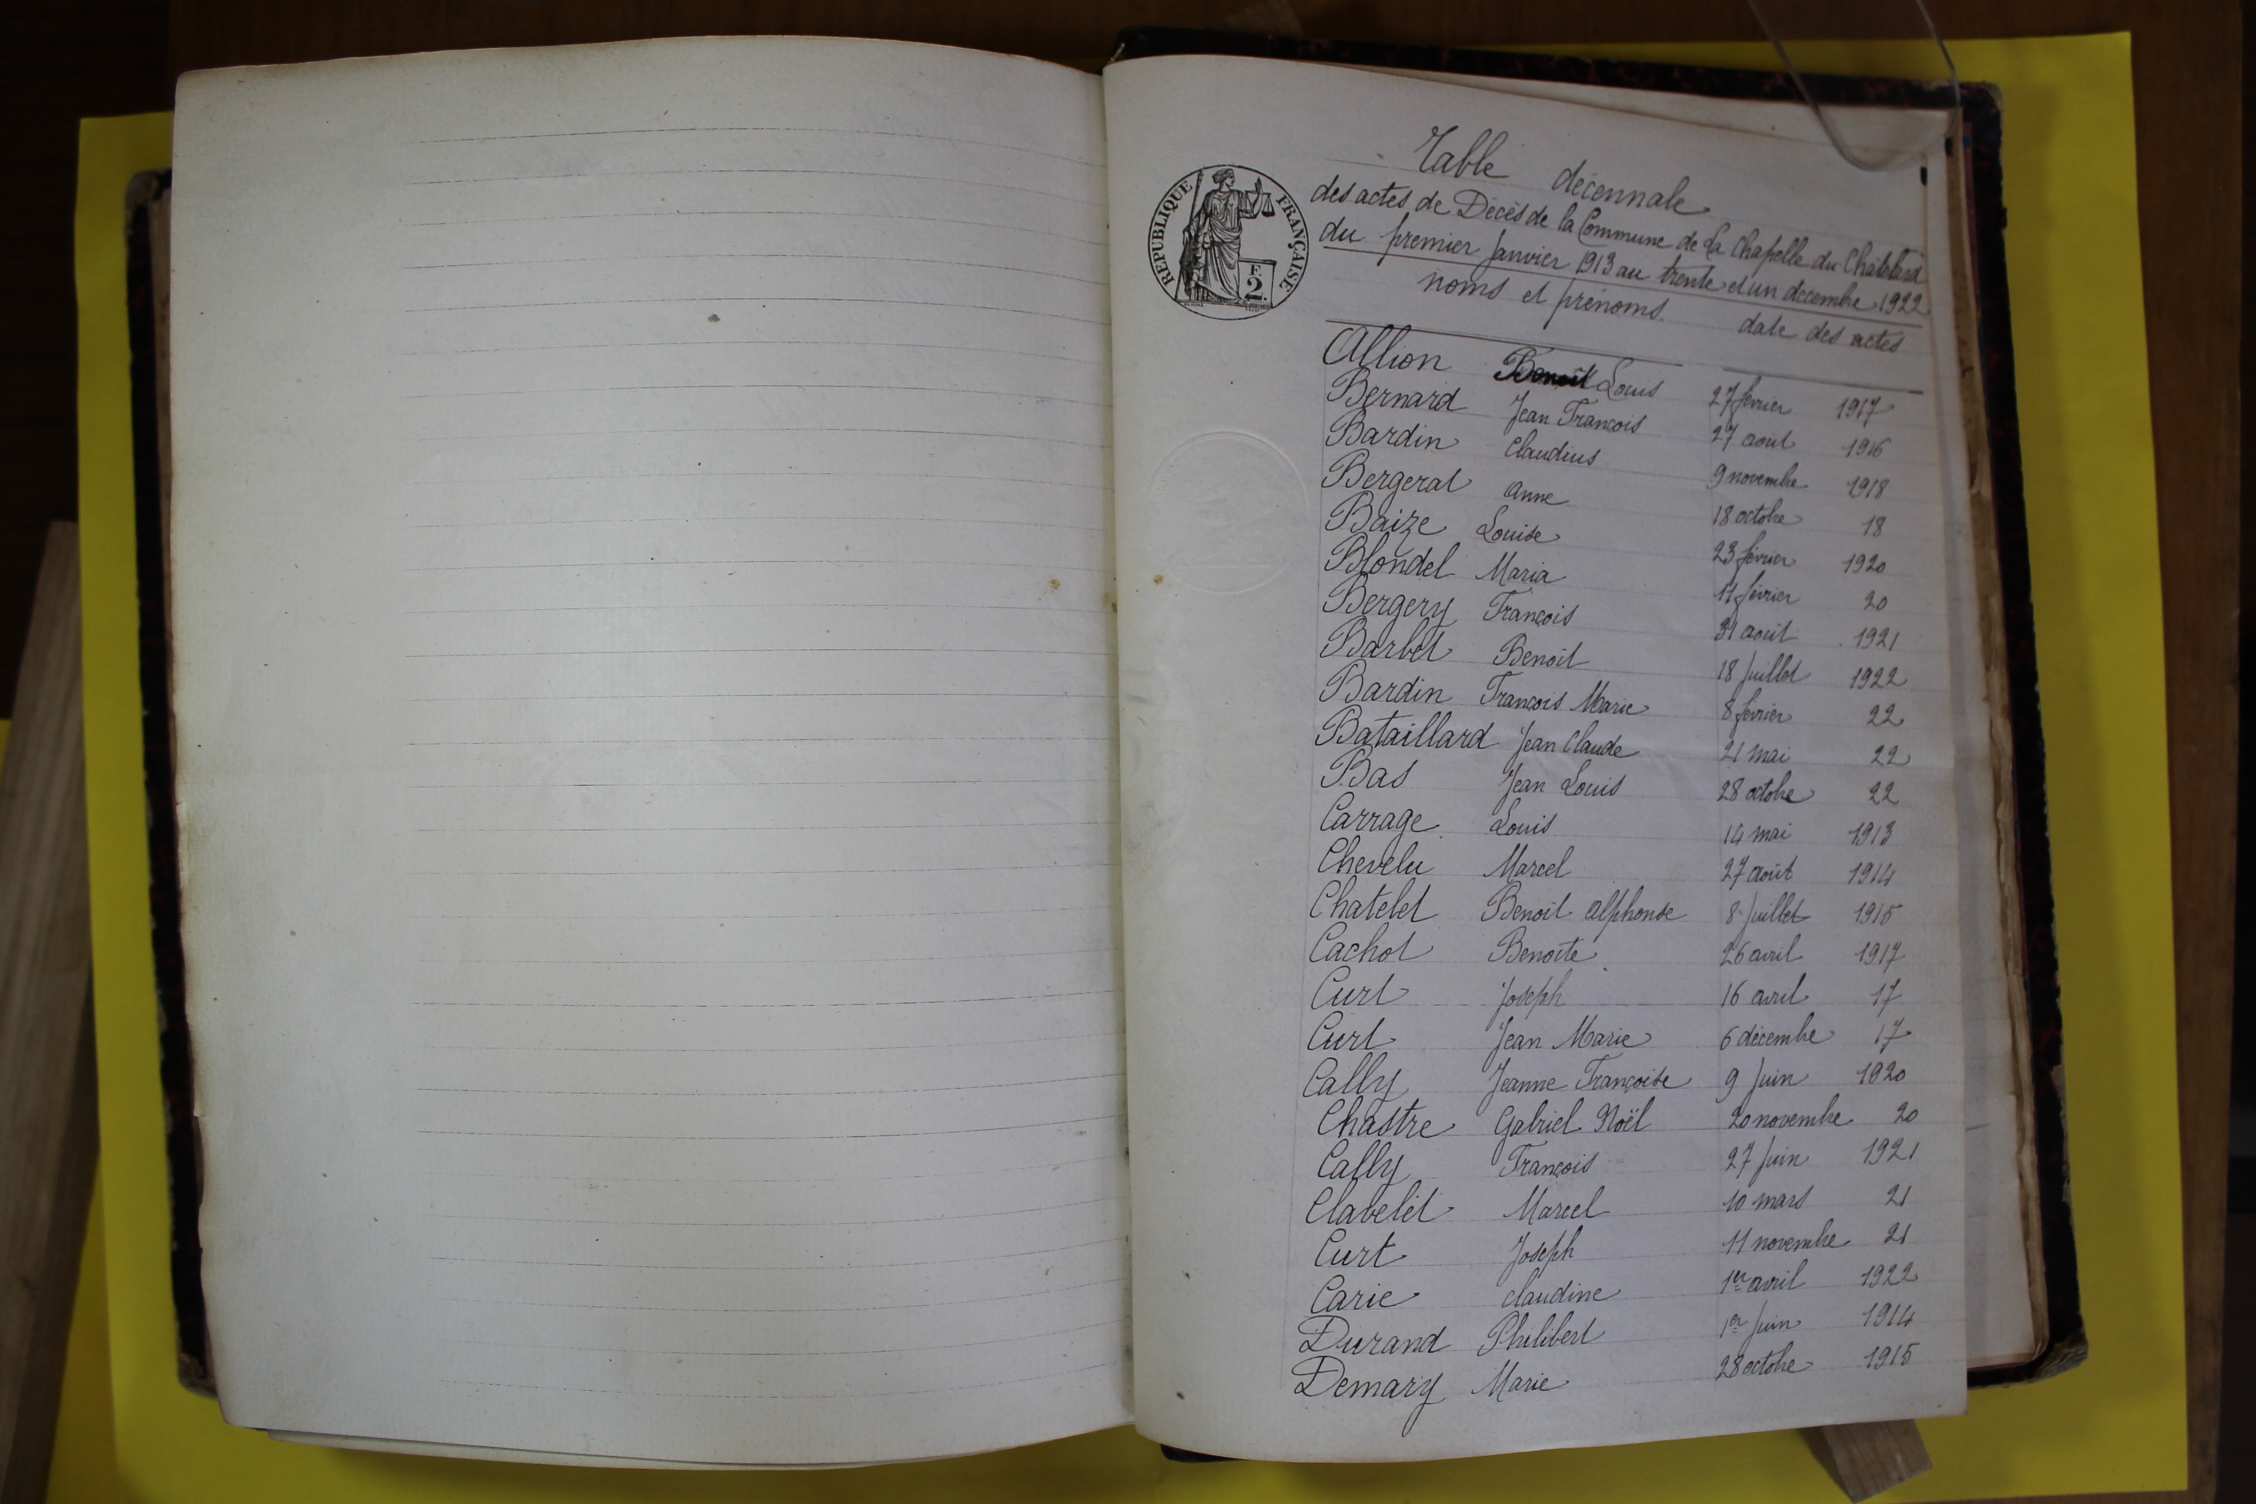 RÉPUBLIQUE FRANÇAISE
F.
2.
Table décennale
des actes de Décès de la Commune de La Chapelle du Châtelard
du premier Janvier 1913 au trente et un décembre 1922
noms et prénoms date des actes
Allion Benoit Louis 27 février 1917
Bernard Jean François 27 aout 1916
Bardin Claudius 9 novembre 1918
Bergerat Anne 18 octobre 18
Baize Louise 23 février 1920
Blondel Maria 11 février 20
Bergery François 31 août 1921
Barbet Benoit 18 Juillet 1922
Bardin François Marie 8 février 22
Bataillard Jean Claude 21 mai 22
Bas Jean Louis 28 octobre 22
Carrage Louis 14 mai 1913
Chevelu Marcel 27 août 1914
Chatelet Benoit Alphonse 8 Juillet 1915
Cachot Benoite 26 avril 1917
Curt Joseph 16 avril 17
Curt Jean Marie 6 décembre 17
Cally Jeanne Françoise 9 Juin 1920
Chastre Gabriel Noël 20 novembre 20
Cally François 27 Juin 1921
Clavelet Marcel 10 mars 21
Curt Joseph 11 novembre 21
Carie Claudine 1er avril 1922
Durand Philibert 1er Juin 1914
Demary Marie 28 octobre 1915